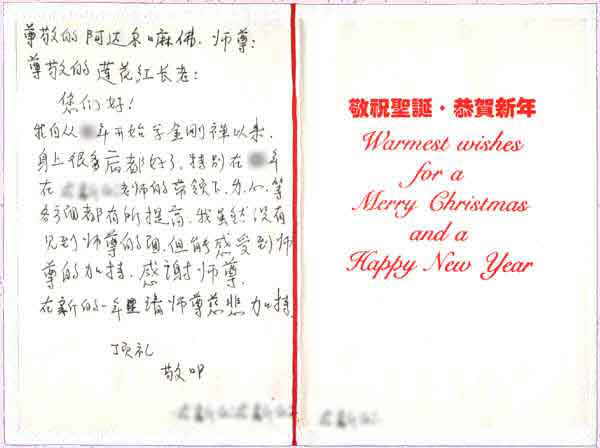 尊敬的阿达尔嘛佛.师尊:
尊敬的莲花红长老:
您们好!
我自从 年开始学金刚禅以来,
身上很多病都好了,特别在 年
在 老师的带领下,身.心.等
各方面都有所提高,我虽然没有
见到师尊的面,但能感受到师
尊的加持,感谢师尊,
在新的一年里请师尊慈悲加持,
顶礼
敬叩
敬祝聖誕·恭賀新年
Warmest wishes
for a
Merry Christmas
and a
Happy New Year